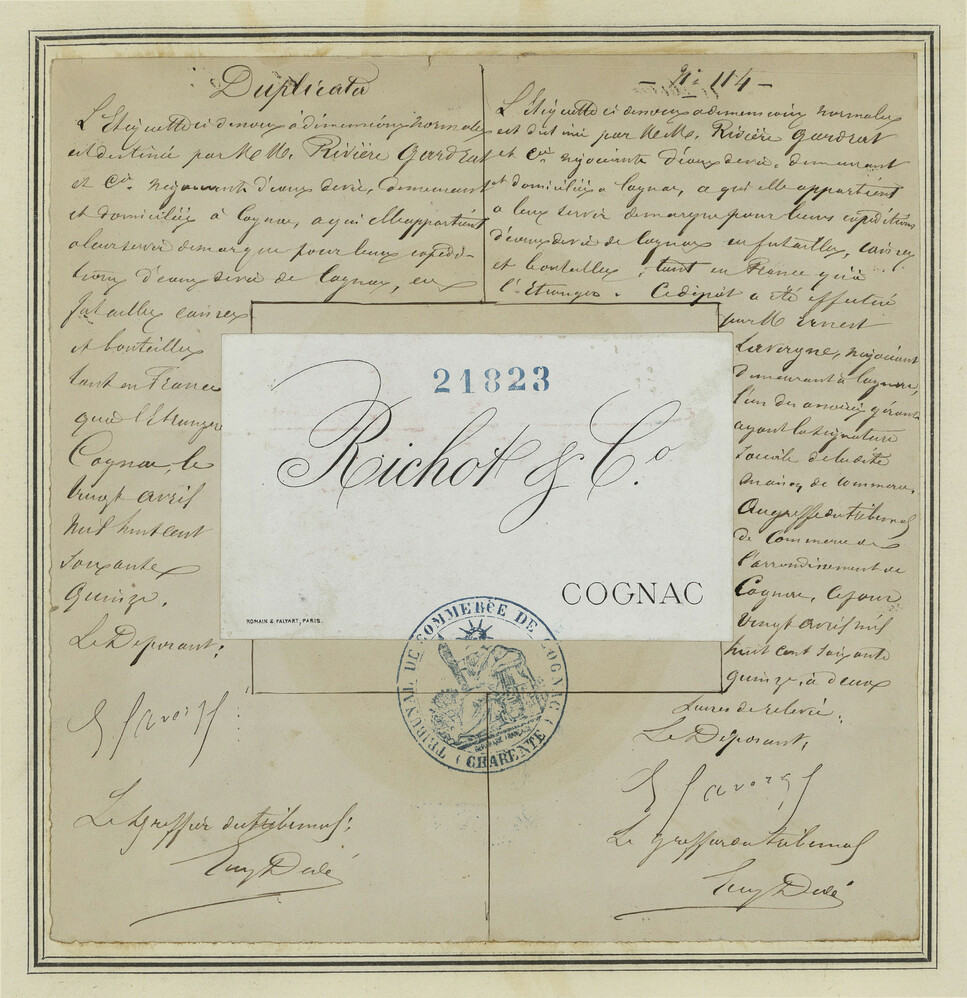 Duplicata
L'Etiquette ci dessous à dimensions normales
est destinée par MM. Rivière Gardrat
et Cie négociants d'eaux de vie, demeurant
et domiciliés à Cognac, a qui elle appartient
a leur servir de marque pour leurs expédi-
tions d'eaux de vie de Cognac, en
futailles caisses
et bouteilles
tant en France
qu'à l'Etranger
Cognac, le
vingt avril
mil huit cent
soixante
quinze.
Le Déposant:
E Lavergne
Le Greffier du tribunal:
- No 114 -
L'Etiquette ci dessous a dimensions normales
est destinée par MM. Rivière Gardrat
et Cie négociants d'eaux de vie, demeurant
et domiciliés a Cognac, a qui elle appartient
a leur servir de marque pour leurs expéditions
d'eaux de vie de Cognac en futailles, caisses
et bouteilles, tant en France qu'à
l'Etranger. Ce dépôt a été effectué
par M Ernest
Lavergne, négociant
demeurant à Cognac,
l'un des associés gérants
ayant la signature
sociale de la dite
maison de commerce,
Au greffe du tribunal
de Commerce de
l'arrondissement de
Cognac, ce jour
vingt avril mil
huit cent soixante
quinze, à deux
heures de relevée.
Le Déposant,
E Lavergne
Le greffier du tribunal
21823
Richot & Co.
COGNAC
ROMAIN & PALYART, PARIS.
TRIBUNAL DE COMMERCE DE COGNAC
(CHARENTE)